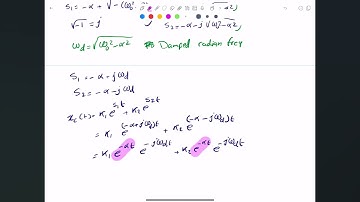 S₁ = -α + √-(ω₀²-α²)
√-1 = j
S₂ = -α - j√(ω₀²-α²)
ωd = √ω₀² - α² Damped radian freq
S₁ = -α - jωd
S₂ = -α - jωd
xc(t) = K₁ e^{S₁t} + K₂ e^{S₂t}
= K₁ e^{(-α+jωd)t} + K₂ e^{(-α-jωd)t}
= K₁ e^{-αt} e^{-jωdt} + K₂ e^{-αt} e^{-jωdt}